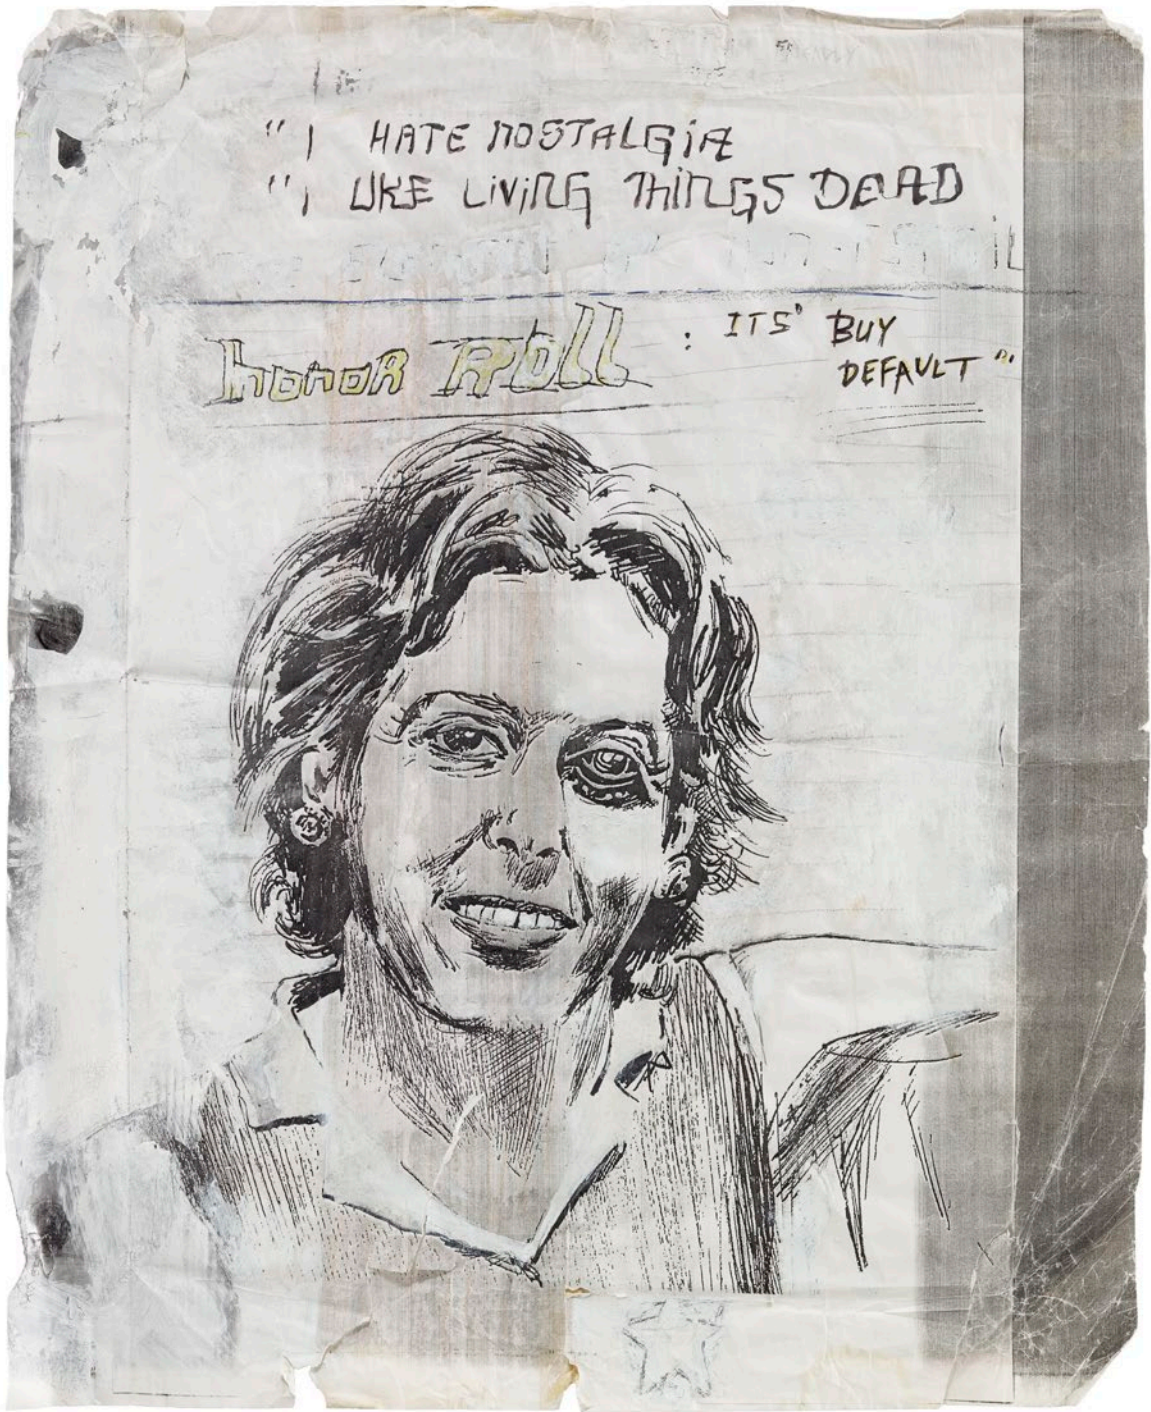 " I HATE NOSTALGIA
" I LIKE LIVING THINGS DEAD
HONOR ROLL : ITS' BUY
DEFAULT "